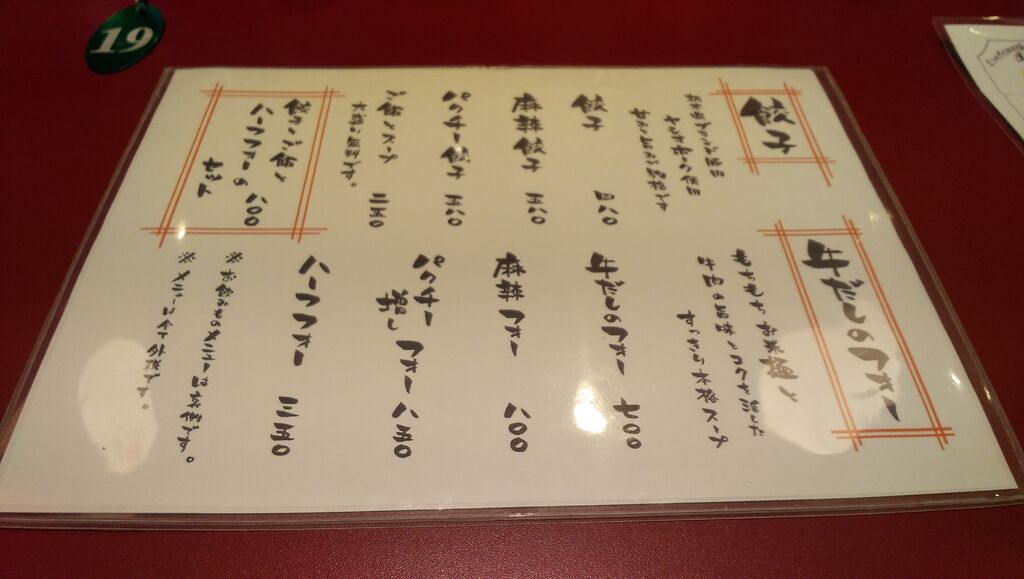 19
餃子
餃子 四八〇
麻辣餃子 五八〇
パクチー餃子 五八〇
ご飯とスープ 三五〇
大盛り無料です。
餃子とご飯と
ハーフフォーの 八〇〇
セット
牛だしのフォー
もちもちお米麺と
牛肉の旨味とコクを活した
すっきり本格スープ
牛だしのフォー 七〇〇
麻辣フォー 八〇〇
パクチー増しフォー 八五〇
ハーフフォー 三五〇
※お飲みものメニューは裏側です。
※メニューは全て外税です。